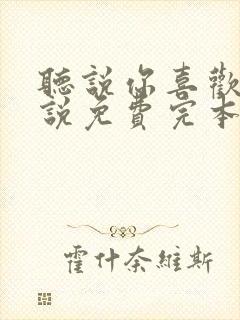 聽說你喜歡
說免費完本
霍什奈維斯